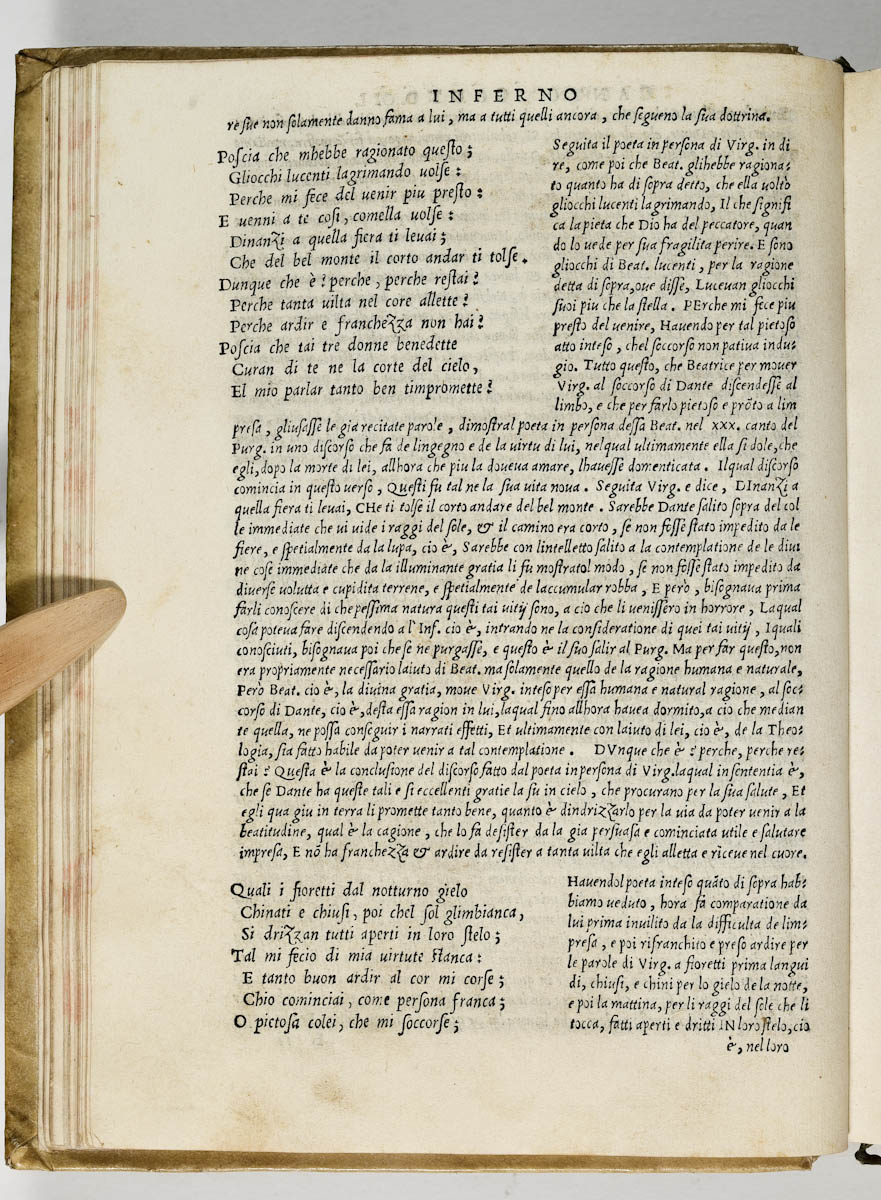 INFERNO
re sue non solamente danno fama a lui, ma a tutti quelli ancora, che segueno la sua dottrina.
Poscia che mhebbe ragionato questo;
Gliocchi lucenti lagrimando uolse:
Perche mi fece del uenir piu presto:
E uenni a te cosi, comella uolse:
Dinanzi a quella fiera ti leuai;
Che del bel monte il corto andar ti tolse.
Dunque che è? perche, perche restai?
Perche tanta uilta nel core allette?
Perche ardir e franchezza non hai?
Poscia che tai tre donne benedette
Curan di te ne la corte del cielo,
El mio parlar tanto ben timpromette?
Seguita il poeta in persona di Virg. in di
re, come poi che Beat. glihebbe ragiona:
to quanto ha di sopra detto, che ella uoltò
gliocchi lucenti lagrimando, Il che signifi
ca la pieta che Dio ha del peccatore, quan
do lo uede per sua fragilita perire. E sono
gliocchi di Beat. lucenti, per la ragione
detta di sopra, oue disse, Luceuan gliocchi
suoi piu che la stella. PErche mi fece piu
presto del uenire, Hauendo per tal pietoso
atto inteso, chel soccorso non patiua indu:
gio. Tutto questo, che Beatrice per mouer
Virg. al soccorso di Dante discendesse al
limbo, e che per farlo pietoso e prõto a lim
presa, gliusasse le gia recitate parole, dimostral poeta in persona dessa Beat. nel xxx. canto del
Purg. in uno discorso che fa de lingegno e de la uirtu di lui, nelqual ultimamente ella si dole, che
egli, dopo la morte di lei, allhora che piu la doueua amare, lhauesse domenticata. Ilqual discorso
comincia in questo uerso, Questi fu tal ne la sua uita noua. Seguita Virg. e dice, DInanzi a
quella fiera ti leuai, CHe ti tolse il corto andare del bel monte. Sarebbe Dante salito sopra del col
le immediate che ui uide i raggi del sole, & il camino era corto, se non fosse stato impedito da le
fiere, e spetialmente da la lupa, cio è, Sarebbe con lintelletto salito a la contemplatione de le diui
ne cose immediate che da la illuminante gratia li fu mostratol modo, se non fosse stato impedito da
diuerse uolutta e cupidita terrene, e spetialmente de laccumular robba, E però, bisognaua prima
farli conoscere di che pessima natura questi tai uitij sono, a cio che li uenissero in horrore, Laqual
cosa poteua fare discendendo a l'Inf. cio è, intrando ne la consideratione di quei tai uitij, I quali
conosciuti, bisognaua poi che se ne purgasse, e questo è il suo salir al Purg. Ma per far questo, non
era propriamente necessario laiuto di Beat. ma solamente quello de la ragione humana e naturale,
Però Beat. cio è, la diuina gratia, moue Virg. inteso per essa humana e natural ragione, al soc:
corso di Dante, cio è, desta essa ragion in lui, laqual fino allhora hauea dormito, a cio che median
te quella, ne possa conseguir i narrati effetti, Et ultimamente con laiuto di lei, cio è, de la Theo:
logia, sia fatto habile da poter uenir a tal contemplatione. DVnque che è? perche, perche re:
stai? Questa è la conclusione del discorso fatto dal poeta in persona di Virg. laqual in sententia è,
che se Dante ha queste tali e si eccellenti gratie la su in cielo, che procurano per la sua salute, Et
egli qua giu in terra li promette tanto bene, quanto è dindrizzarlo per la uia da poter uenir a la
beatitudine, qual è la cagione, che lo fa desister da la gia persuasa e cominciata utile e salutare
impresa, E nõ ha franchezza & ardire da resister a tanta uilta che egli alletta e riceue nel cuore.
Quali i fioretti dal notturno gielo
Chinati e chiusi, poi chel sol glimbianca,
Si drizzan tutti aperti in loro stelo;
Tal mi fecio di mia uirtute stanca:
E tanto buon ardir al cor mi corse;
Chio cominciai, come persona franca;
O pietosa colei, che mi soccorse;
Hauendol poeta inteso quãto di sopra hab:
biamo ueduto, hora fa comparatione da
lui prima inuilito da la difficulta de lim:
presa, e poi rifranchito e preso ardire per
le parole di Virg. a fioretti prima langui
di, chiusi, e chini per lo gielo de la notte,
e poi la mattina, per li raggi del sole che li
tocca, fatti aperti e dritti IN loro stelo, cio
è, nel loro